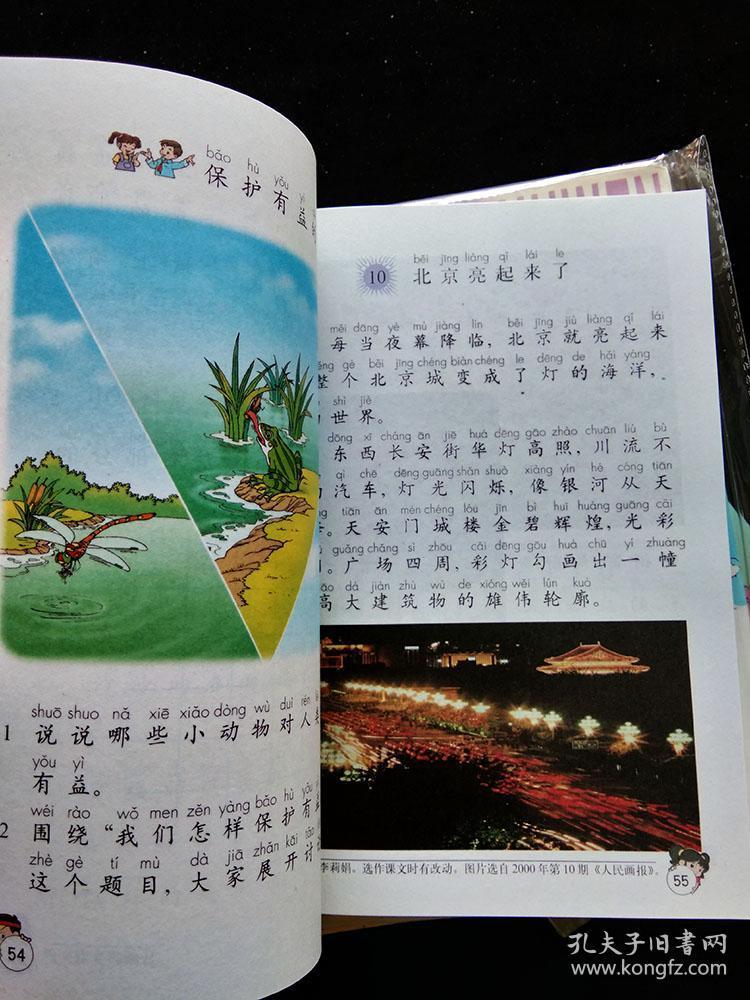 bǎo hù yǒu yì
保护有益
shuō shuo nǎ xiē xiǎo dòng wù duì rén
1 说说哪些小动物对人类
yǒu yì
有益。
wéi rào wǒ men zěn yàng bǎo hù yǒu
2 围绕“我们怎样保护有益
zhè gè tí mù dà jiā zhǎn kāi tǎo
这个题目,大家展开讨
54
běi jīng liàng qǐ lái le
10 北京亮起来了
měi dāng yè mù jiàng lín běi jīng jiù liàng qǐ lái
每当夜幕降临,北京就亮起来
gè běi jīng chéng biàn chéng le dēng de hǎi yáng
整个北京城变成了灯的海洋,
shì jiè
世界。
dōng xī cháng ān jiē huá dēng gāo zhào chuān liú bù
东西长安街华灯高照,川流不
qì chē dēng guāng shǎn shuò xiàng yín hé cóng tiān
汽车,灯光闪烁,像银河从天
tiān ān mén chéng lóu jīn bì huī huáng guāng cǎi
天安门城楼金碧辉煌,光彩
guǎng chǎng sì zhōu cǎi dēng gōu huà chū yí zhuàng
广场四周,彩灯勾画出一幢
dà jiàn zhù wù de xióng wěi lún kuò
高大建筑物的雄伟轮廓。
李莉娟。选作课文时有改动。图片选自2000年第10期《人民画报》。
55
孔夫子旧书网
www.kongfz.com